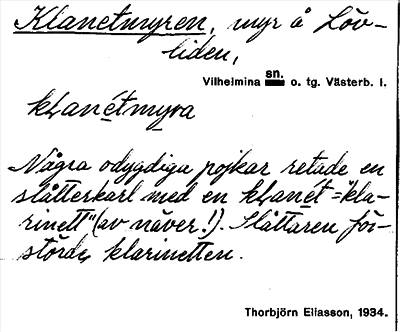 Klanetmyren, myr å Löv-
liden,
Vilhelmina sn. o. tg. Västerb. l.
kḷanétmyra
Några odygdiga pojkar retade en
slåtterkarl med en kḷanét = "kla-
rinett" (av näver!). Slåttaren för-
störde klarinetten.
Thorbjörn Eliasson, 1934.